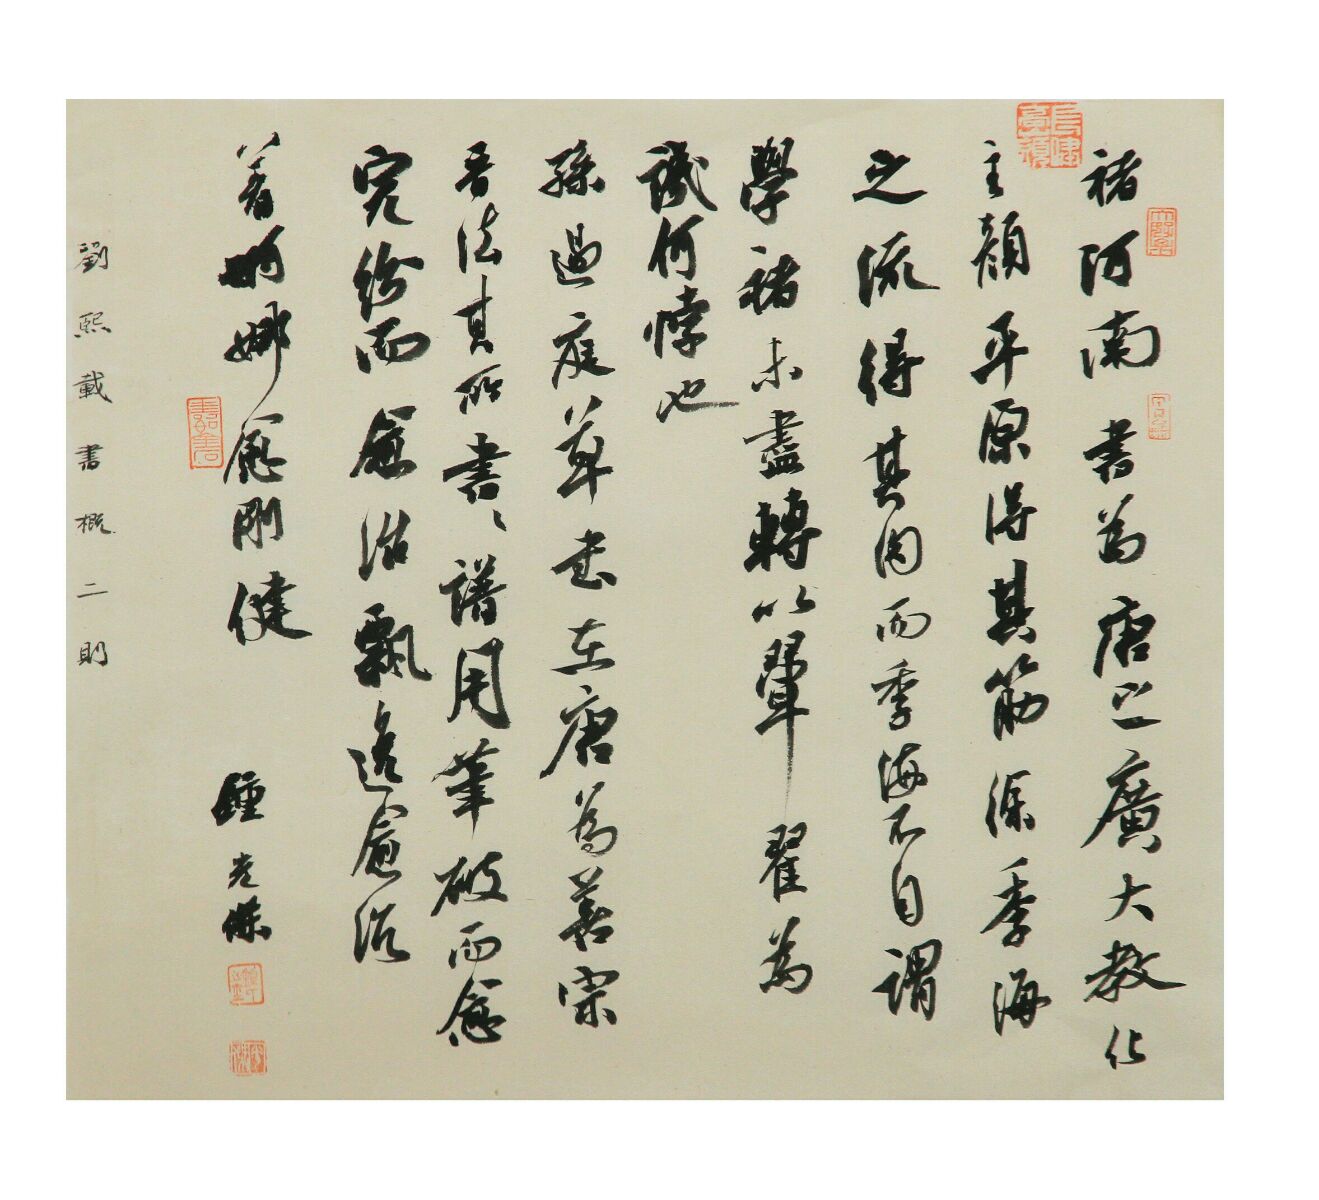 褚河南書為唐之廣大教化
主顏平原得其筋徐季海
之流得其肉而季海不自謂
學褚未盡轉以翬翟為
譏何悖也
孫過庭草書在唐為善宗
晉法其所書書譜用筆破而愈
完紛而愈治飄逸愈沉
著婀娜愈剛健
鍾光傑
劉熙載書概二則